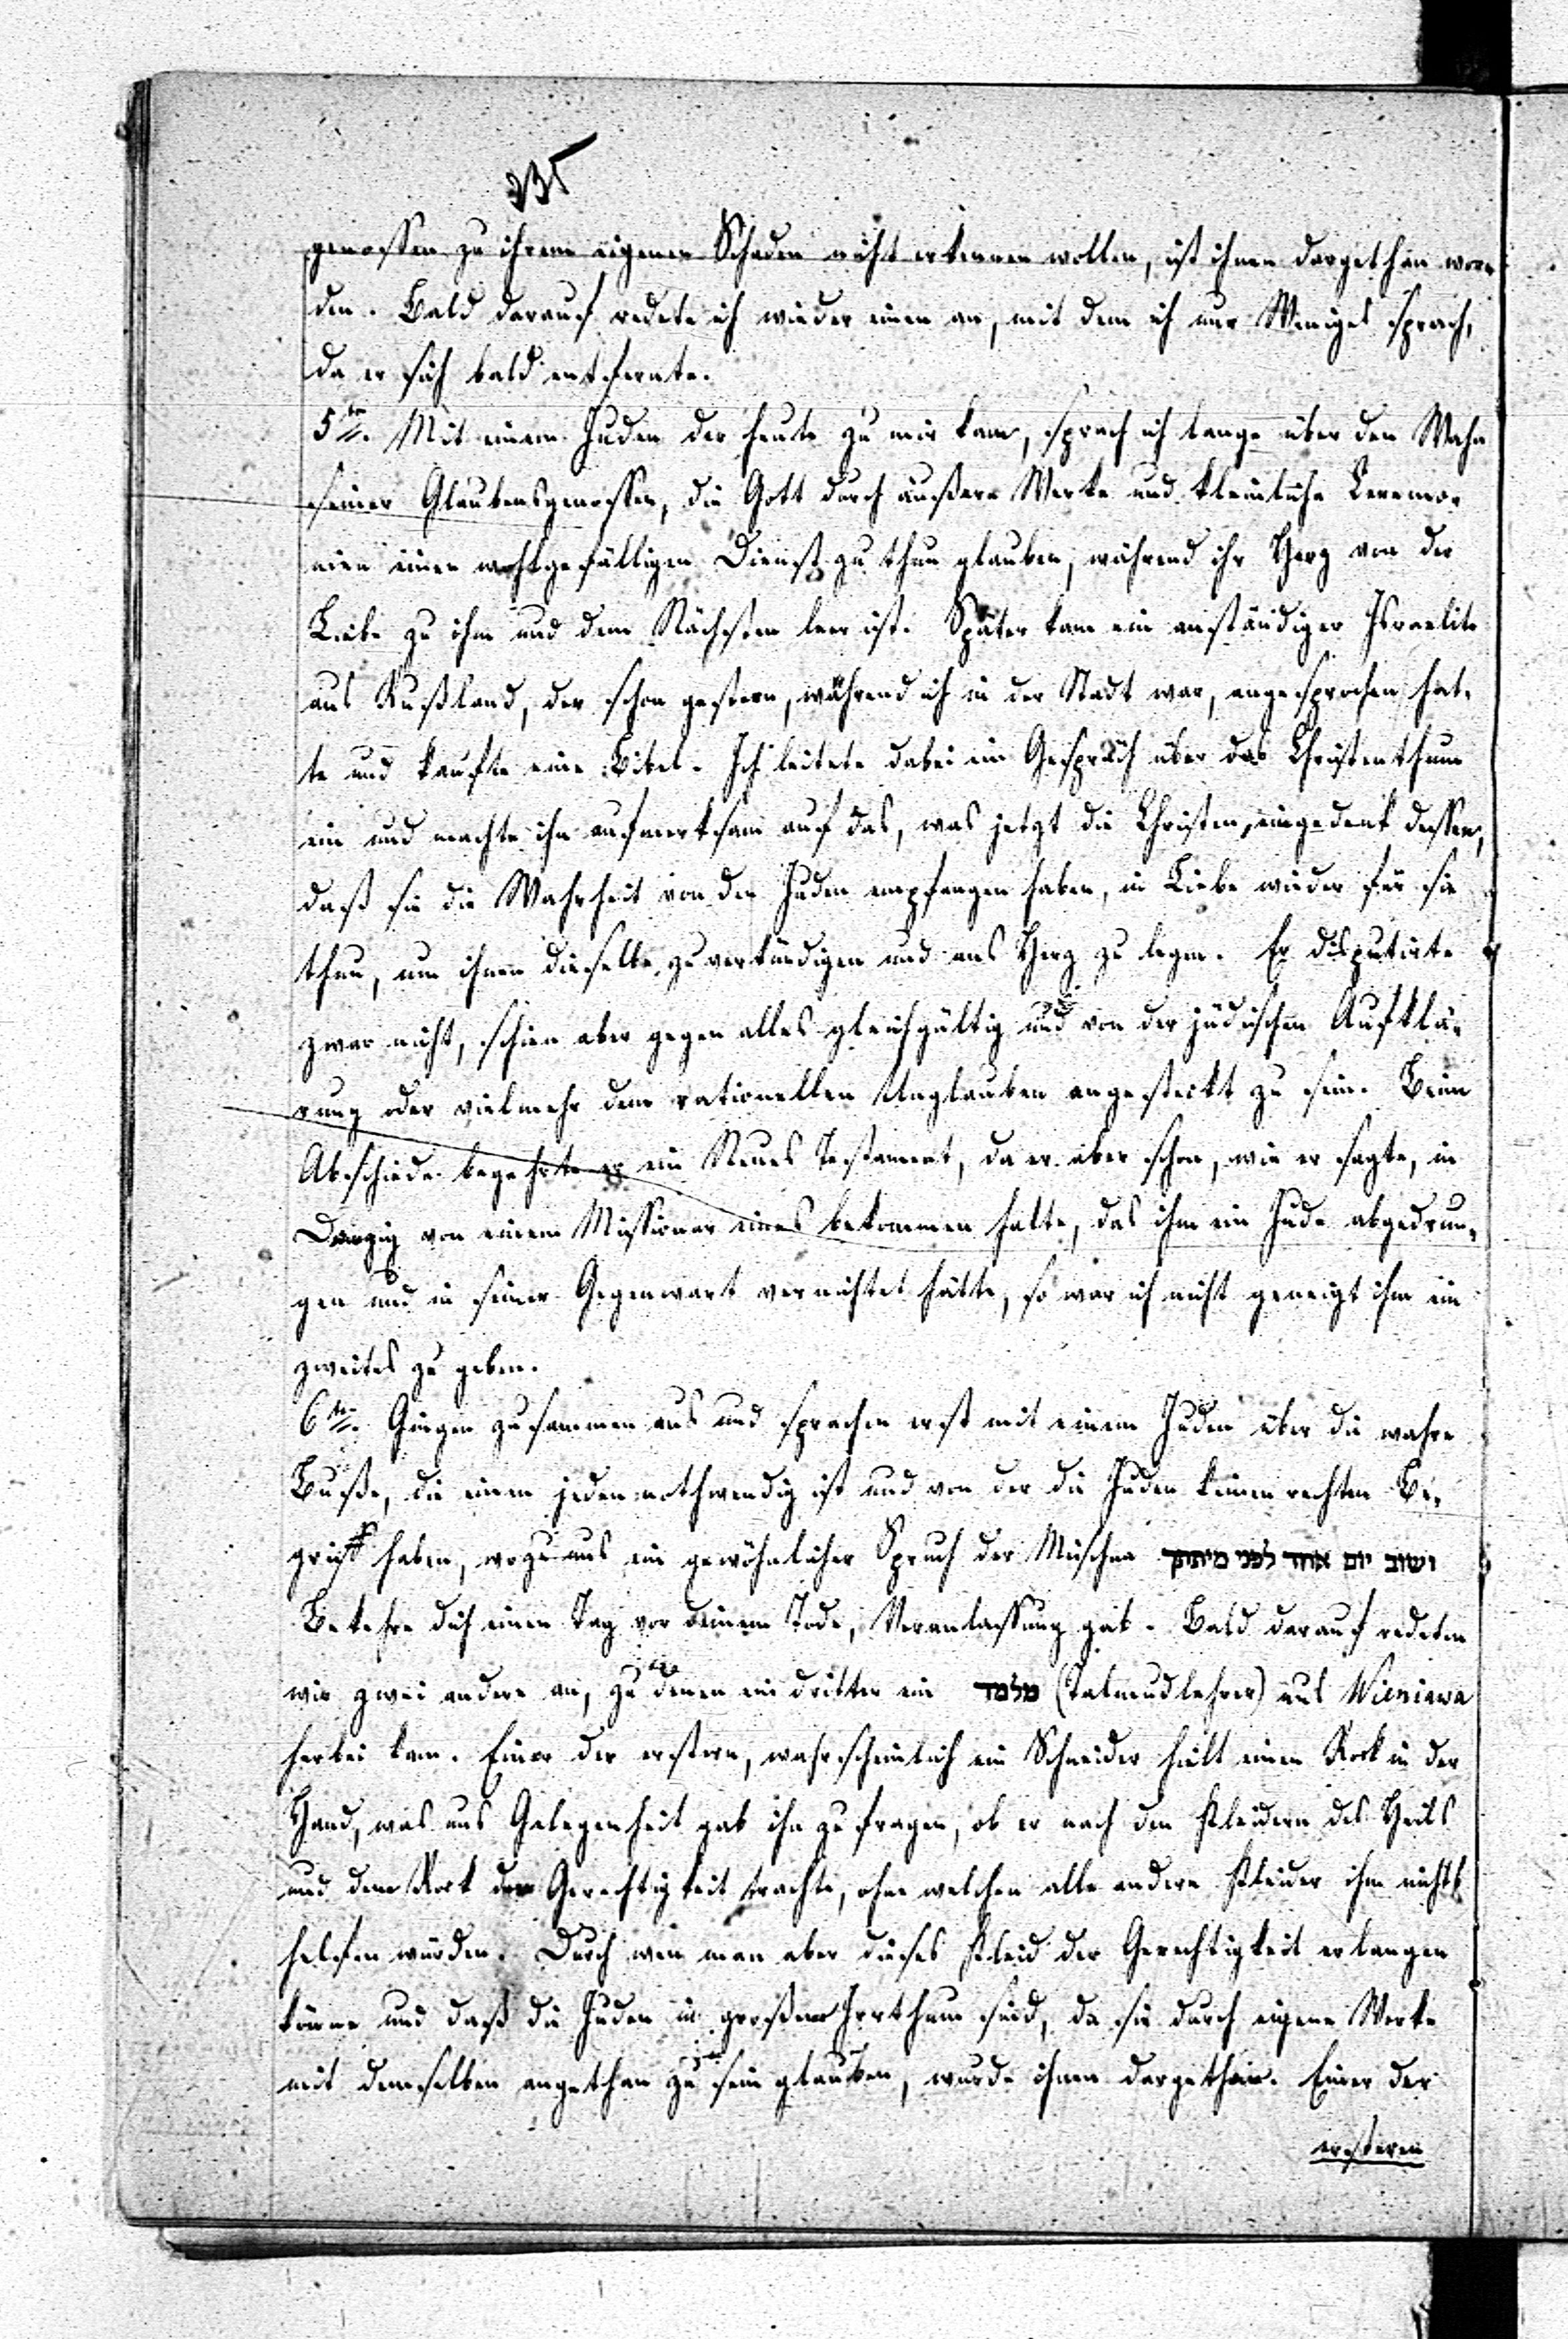 235
genossen zu ihrem eigenen Schaden nicht erkennen wollen, ist ihnen dargethan wor-
den. Bald darauf redete ich wieder einen an, mit dem ich nur Weniges sprach,
da er sich bald entfernte.
5ten. Mit einem Juden der heute zu mir kam, sprach ich lange über den Wahn
seiner Glaubensgenossen, die Gott durch äußere Werke und kleinliche Ceremo-
nien einen wohlgefälligen Dienst zu thun glauben, während ihr Herz von der
Liebe zu ihm und dem Nächsten leer ist. Später kam ein anständiger Israelite
aus Rußland, der schon gestern, während ich in der Stadt war, angesprochen hat-
te und kaufte eine Bibel. Ich leitete dabei ein Gespräch über das Christenthum
ein und machte ihn aufmerksam auf das, was jetzt die Christen, eingedenk dessen,
daß sie die Wahrheit von den Juden empfangen haben, in Liebe wieder für sie
thun, um ihnen dieselbe zu verkündigen und ans Herz zu legen. Er disputirte
zwar nicht, schien aber gegen alles gleichgültig und von der jüdischen Aufklä-
rung oder vielmehr dem rationellen Unglauben angesteckt zu sein. Beim
Abschiede begehrte er ein Neues Testament, da er aber schon, wie er sagte, in
Danzig von einem Missionar eines bekommen hatte, das ihm ein Jude abgedrun-
gen und in seiner Gegenwart vernichtet hätte, so war ich nicht geneigt ihm ein
zweites zu geben.
6ten. Gingen zusammen aus und sprachen erst mit einem Juden über die wahre
Buße, die einem jeden nothwendig ist und von der die Juden keinen rechten Be-
griff haben, wozu uns ein gewöhnlicher Spruch der Mischna ושוב יום אחד לפני מיתתך
Bekehre dich einen Tag vor deinem Tode, Veranlassung gab. Bald darauf redeten
wir zwei andere an, zu denen ein dritter ein מלמד (Talmudlehrer) aus Wieniawa
herbei kam. Einer der erstern, wahrscheinlich ein Schneider hielt einen Rock in der
Hand, was uns Gelegenheit gab ihn zu fragen, ob er nach den Kleidern des Heils
und dem Rock der Gerechtigkeit trachte, ohne welchen alle andern Kleider ihm nichts
helfen würden. Durch wen man aber dieses Kleid der Gerechtigkeit erlangen
könne und daß die Juden in großem Irrthum sind, da sie durch eigene Werke
mit demselben angethan zu sein glauben, wurde ihnen dargethan. Einer der
ersteren